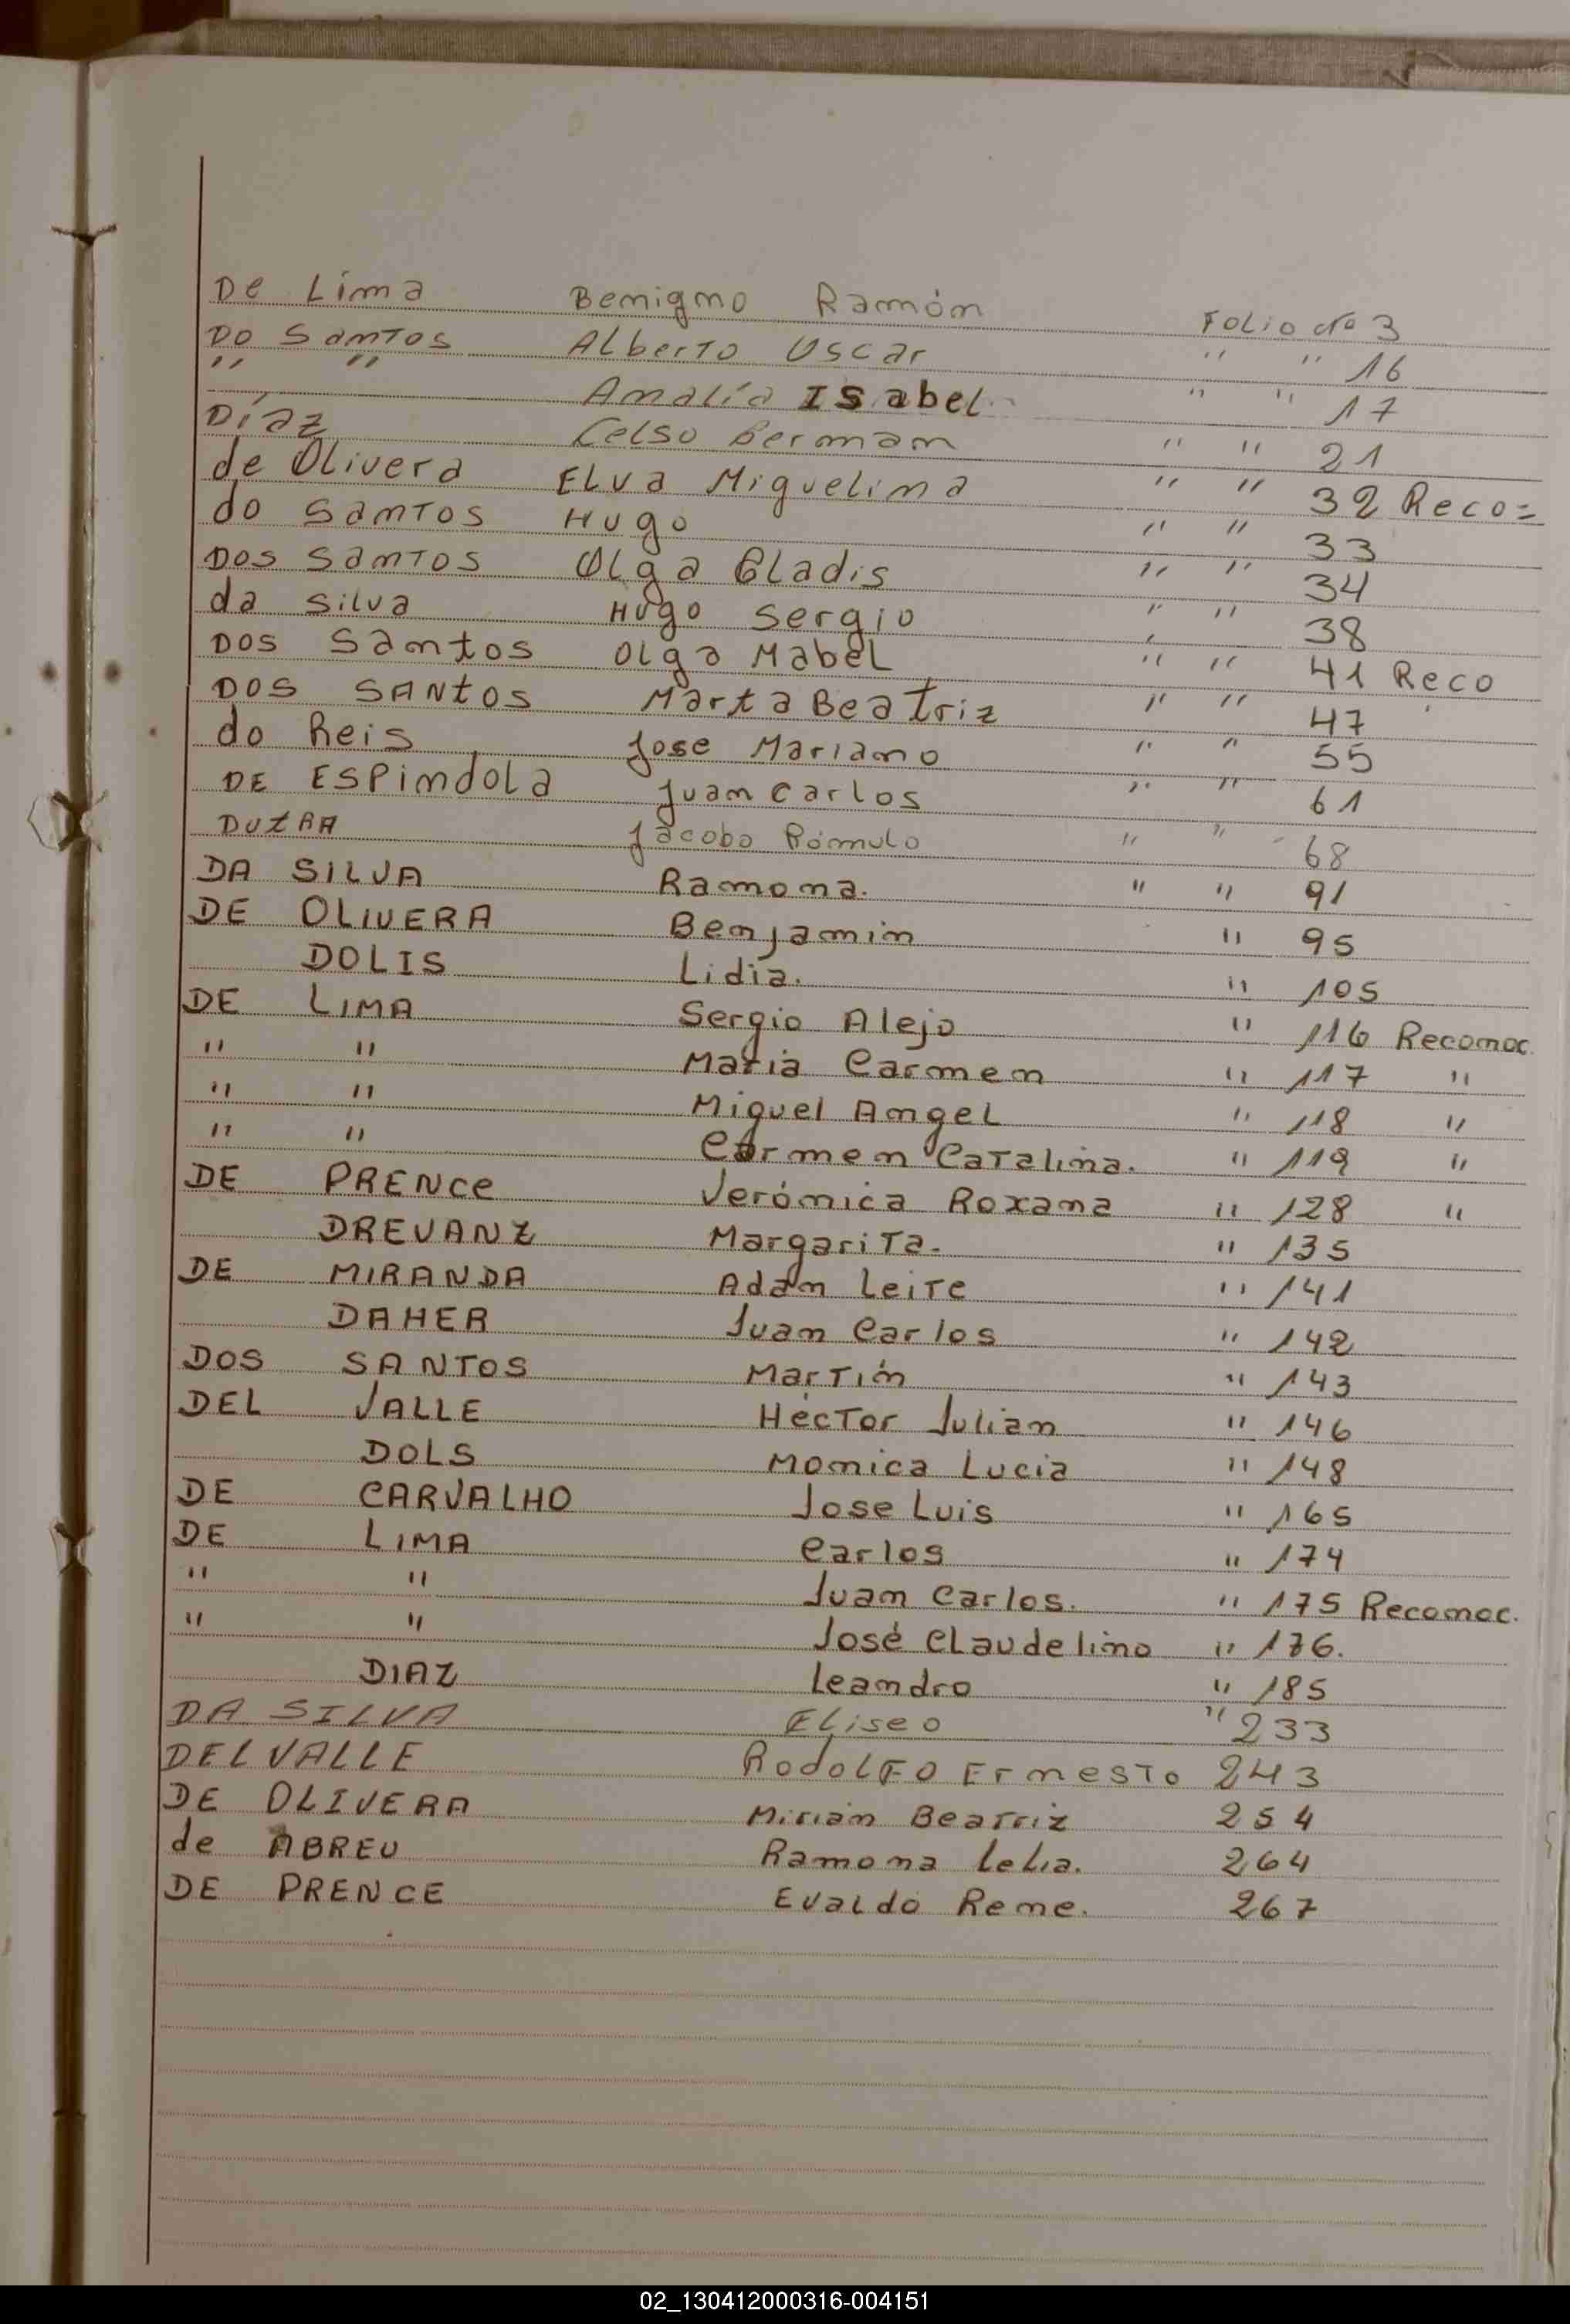 De Lima Benigno Ramón Folio No 3
DO Santos Alberto Oscar " " 16
" " Amalia Isabel " " 17
Díaz Celso German " " 21
de Olivera Elva Miguelina " " 32 Reco=
do Santos Hugo " " 33
Dos Santos Olga Gladis " " 34
da Silva Hugo Sergio " " 38
DOS Santos Olga Mabel " " 41 Reco
DOS SANtoS Marta Beatriz " " 47
do Reis Jose Mariano " " 55
DE ESPindola Juan Carlos " " 61
DUtRA Jacobo Rómulo " " 68
DA SILVA Ramona. " " 91
DE OLIVERA Benjamin " 95
DOLIS Lidia. " 105
DE LIMA Sergio Alejo " 116 Reconoc.
" " Maria Carmen " 117 "
" " Miguel Angel " 118 "
" " Carmen Catalina. " 119 "
DE PRENCe Verónica Roxana " 128 "
DREVANZ Margarita. " 135
DE MIRANDA Adán Leite " 141
DAHER Juan Carlos " 142
DOS SANTOS Martín " 143
DEL VALLE Héctor Julian " 146
DOLS Monica Lucia " 148
DE CARVALHO Jose Luis " 165
DE LIMA Carlos " 174
" " Juan Carlos. " 175 Reconoc.
" " José Claudelino " 176.
DIAZ Leandro " 185
DA SILVA Eliseo " 233
DELVALLE Rodolfo Ernesto 243
DE OLIVERA Mirian Beatriz 254
de ABREU Ramona Lelia. 264
DE PRENCE Evaldo Rene. 267
02_130412000316-004151